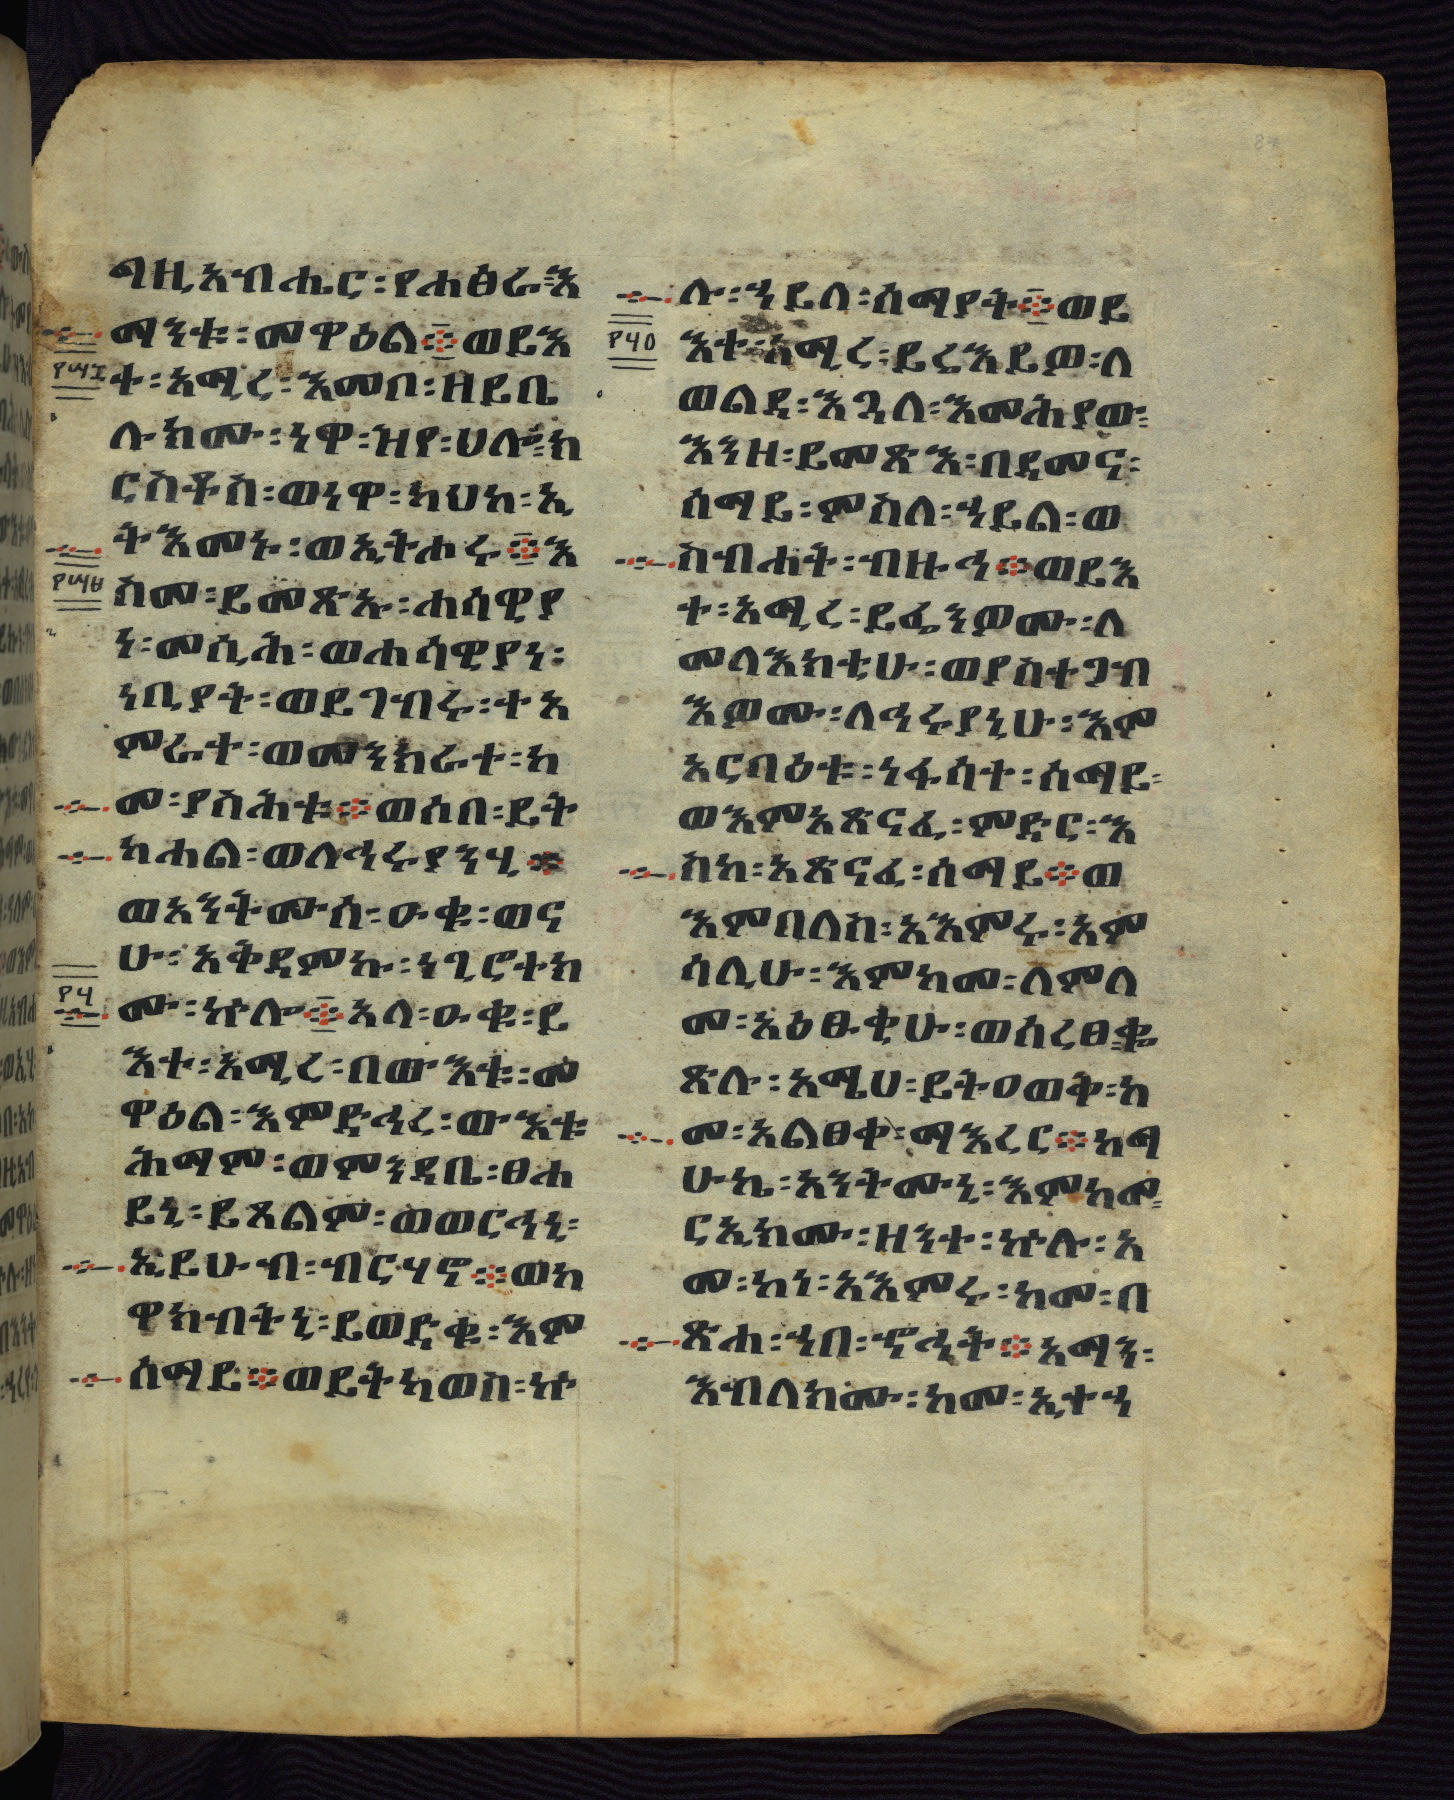 ግዚአብሔር፡የሐፅራ፡እ
ማንቱ፡መዋዕል፨ወይእ
ተ፡አሚረ፡እመቦ፡ዘይቤ
ሉክሙ፡ነዋ፡ዝየ፡ሀሎ፡ክ
ርስቶስ፡ወነዋ፡ካህክ፡ኢ
ትእመኑ፡ወኢትሑሩ፨እ
ስመ፡ይመጽኡ፡ሐሳዊያ
ን፡መሲሕ፡ወሐሳዊያነ፡
ነቢያት፡ወይገብሩ፡ተአ
ምራተ፡ወመንክራተ፡ከ
መ፡ያስሕቱ፨ወሰበ፡ይት
ከሐል፡ወለኅሩያንሂ፨
ወአንትሙሰ፡ዑቁ፡ወና
ሁ፡አቅዳምኩ፡ነጊሮተክ
ሙ፡ኵሎ፨አላ፡ዑቁ፡ይ
እተ፡አሚረ፡በውእቱ፡መ
ዋዕል፡እምድኅረ፡ውእቱ፡
ሕማም፡ወምንዳቤ፡ፀሐ
ይኒ፡ይጸልም፡ወወርኅኒ፡
ኢይሁብ፡ብርሃኖ፨ወከ
ዋክብትኒ፡ይወድቁ፡እም
ሰማይ፨ወይትከወስ፡ኵ
ሉ፡ኀይለ፡ሰማያት፨ወይ
እተ፡አሚረ፡ይሬእይዎ፡ለ
ወልደ፡እጓለ፡እመሕያው፡
እንዘ፡ይመጽእ፡በደመና፡
ሰማይ፡ምስለ፡ኀይል፡ወ
ስብሐት፡ብዙኅ፨ወይእ
ተ፡አሚረ፡ይፌንዎሙ፡ለ
መላእክቲሁ፡ወያስተጋብ
እዎሙ፡ለኅሩያኒሁ፡እም
አርባዕቱ፡ነፋሳተ፡ሰማይ፡
ወእምአጽናፈ፡ምድር፡እ
ስከ፡አጽናፈ፡ሰማይ፨ወ
እምበለስ፡አእምሩ፡አም
ሳሊሁ፡እምከመ፡ለምለ
መ፡አዕፁቂሁ፡ወሰረፀ፡ቈ
ጽሉ፡አሜሀ፡ይትዐወቅ፡ከ
መ፡አልፀቀ፡ማእረር፨ከማ
ሁኬ፡አንትሙኒ፡እምከመ፡
ርኢክሙ፡ዘንተ፡ኵሉ፡አ
መ፡ከነ፡አእምሩ፡ከመ፡በ
ጽሐ፡ኀበ፡ኆኅት፨አማን፡
እብለክሙ፡ከመ፡ኢተኀ